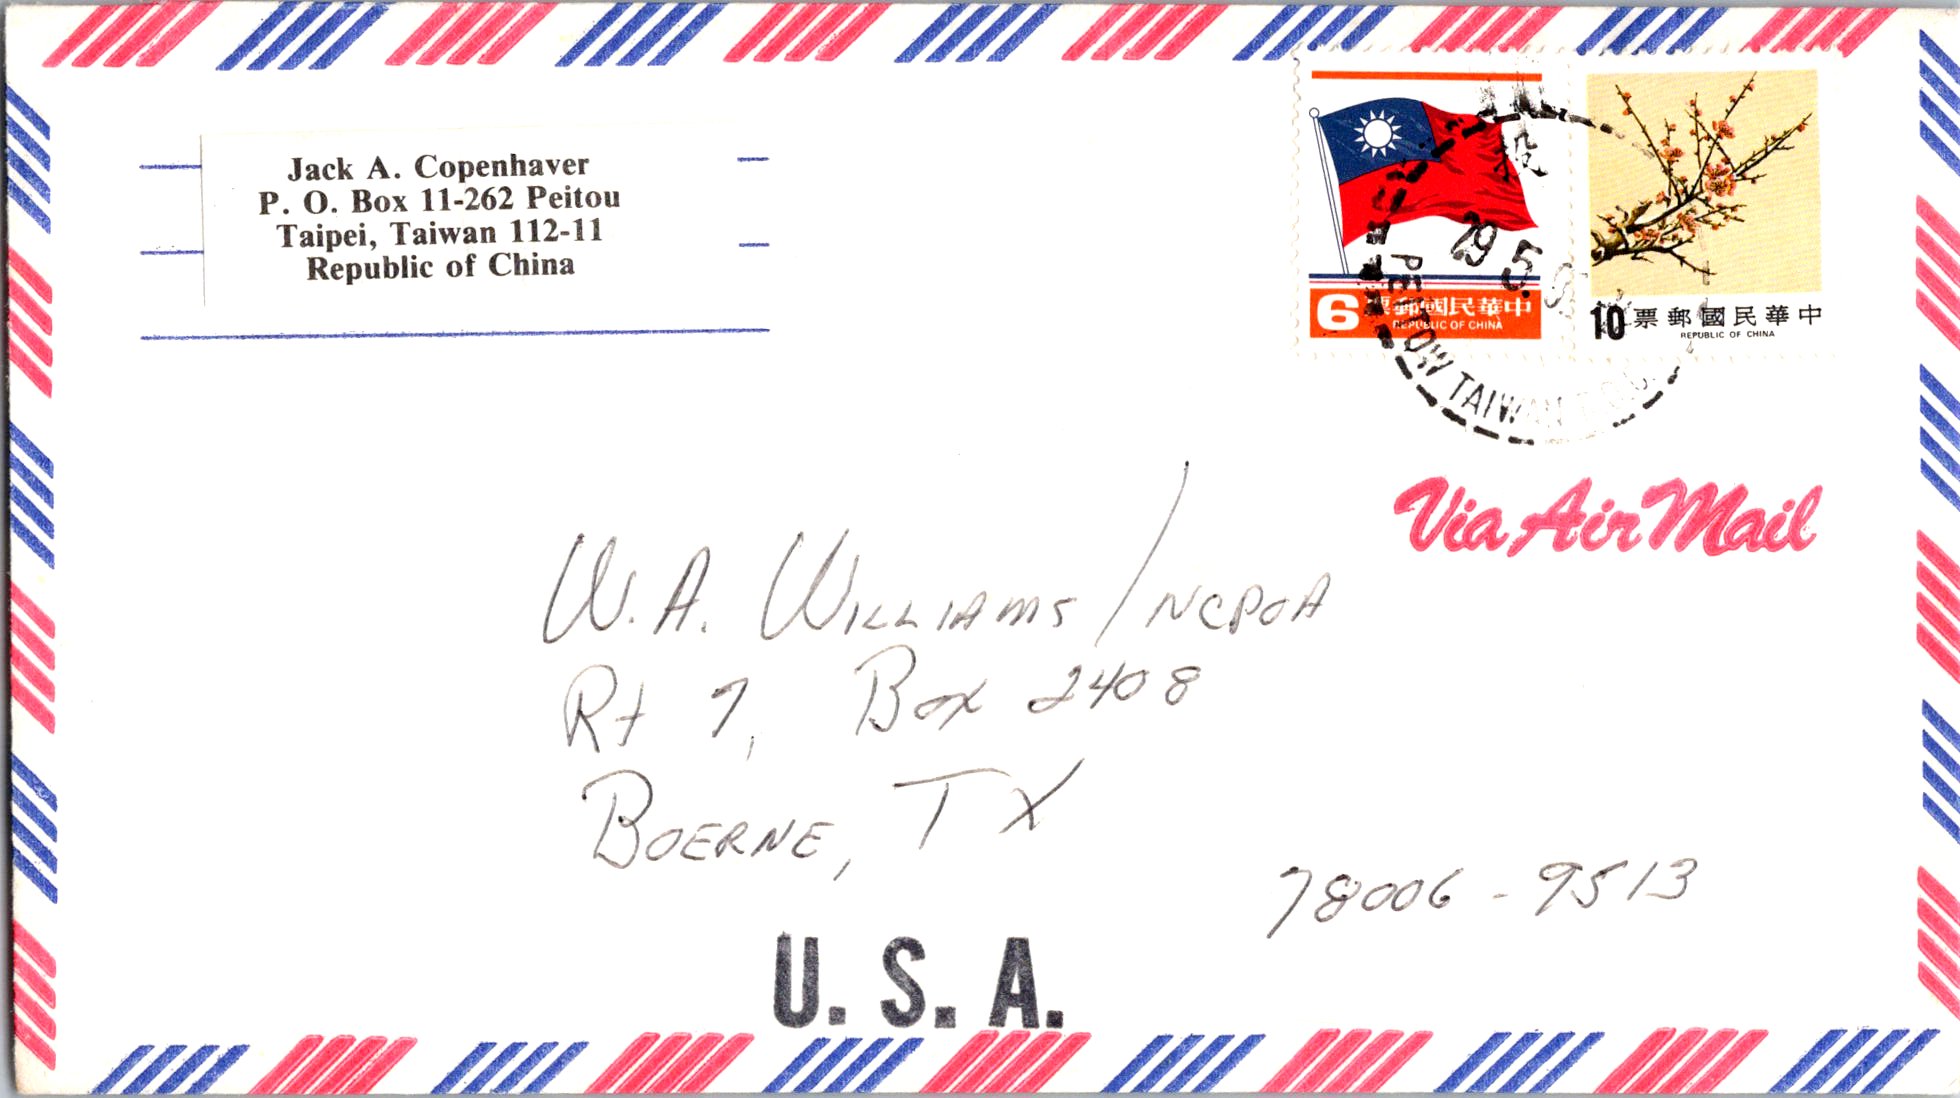 Jack A. Copenhaver
P. O. Box 11-262 Peitou
Taipei, Taiwan 112-11
Republic of China
6 票郵國民華中
REPUBLIC OF CHINA
10 票郵國民華中
REPUBLIC OF CHINA
29 5.
PEITOW TAIWAN
Via Air Mail
W. A. WILLIAMS / NCPOA
Rt 7, Box 2408
BOERNE, TX
78006 - 9513
U. S. A.